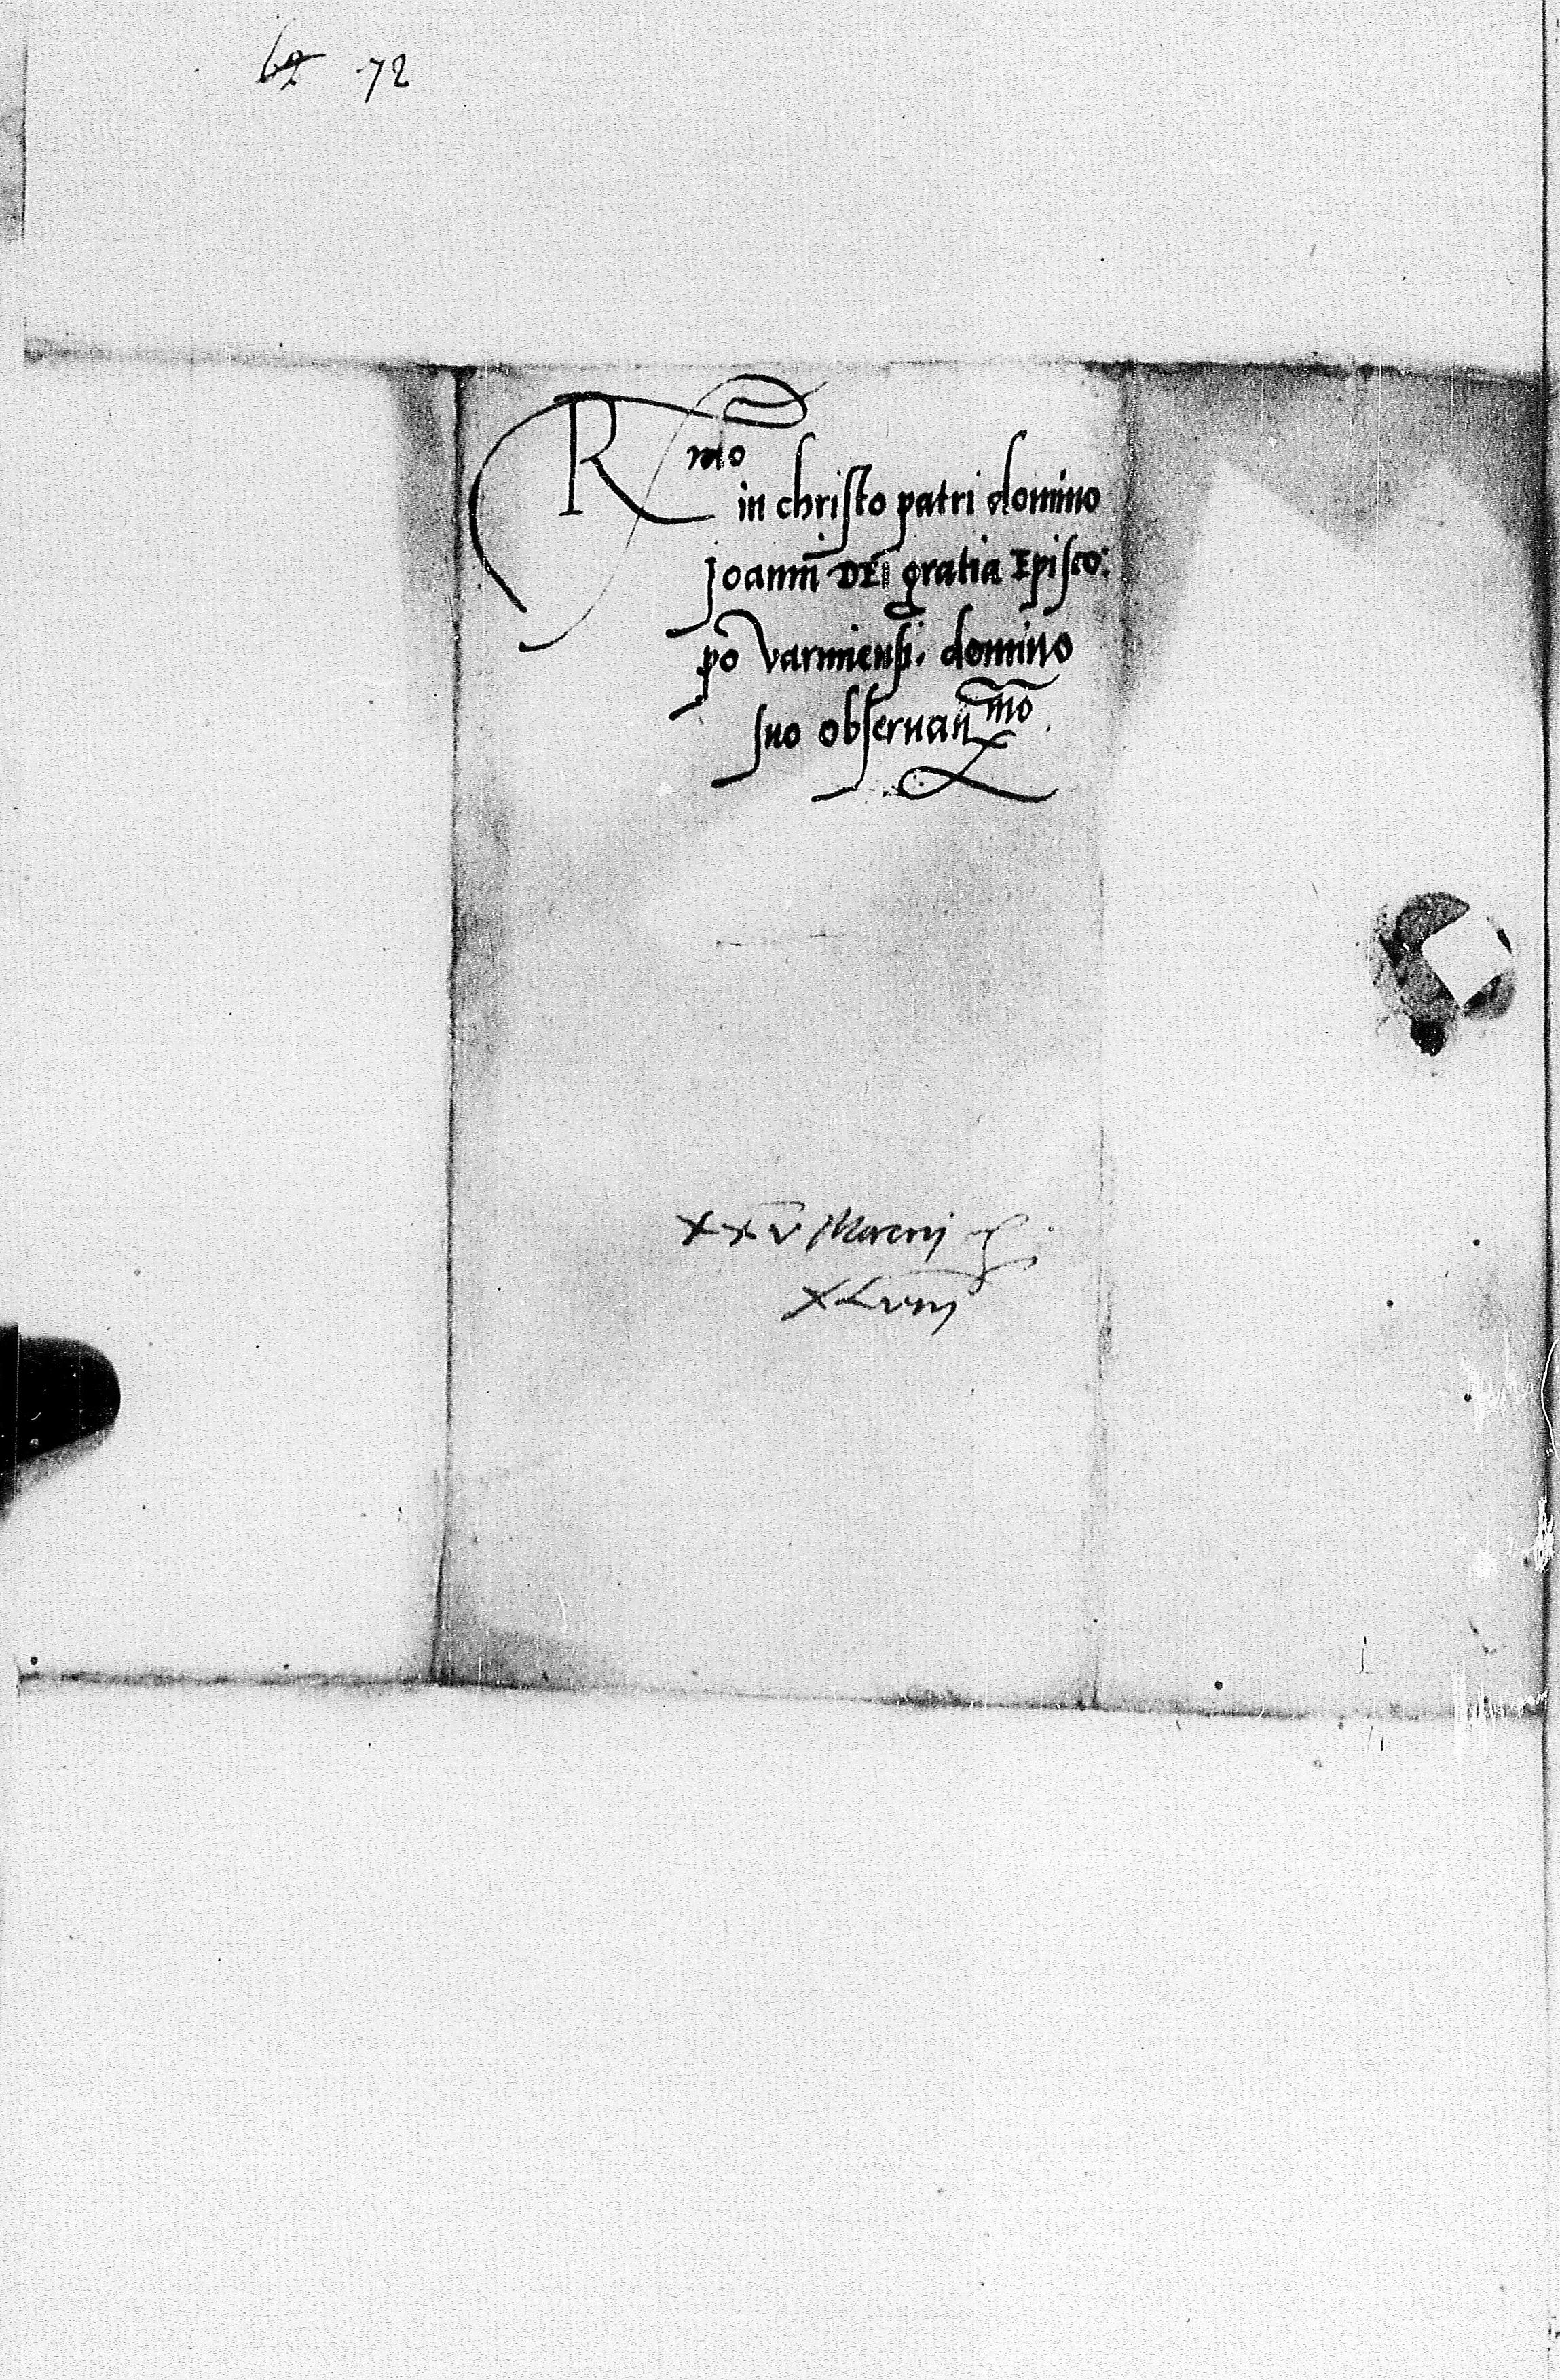 69 72
Rmo
in christo patri domino
Joanni DEI gratia Episco:
po varmiensi. domino
suo observanmo
XXV Marcij
XLVIIJ